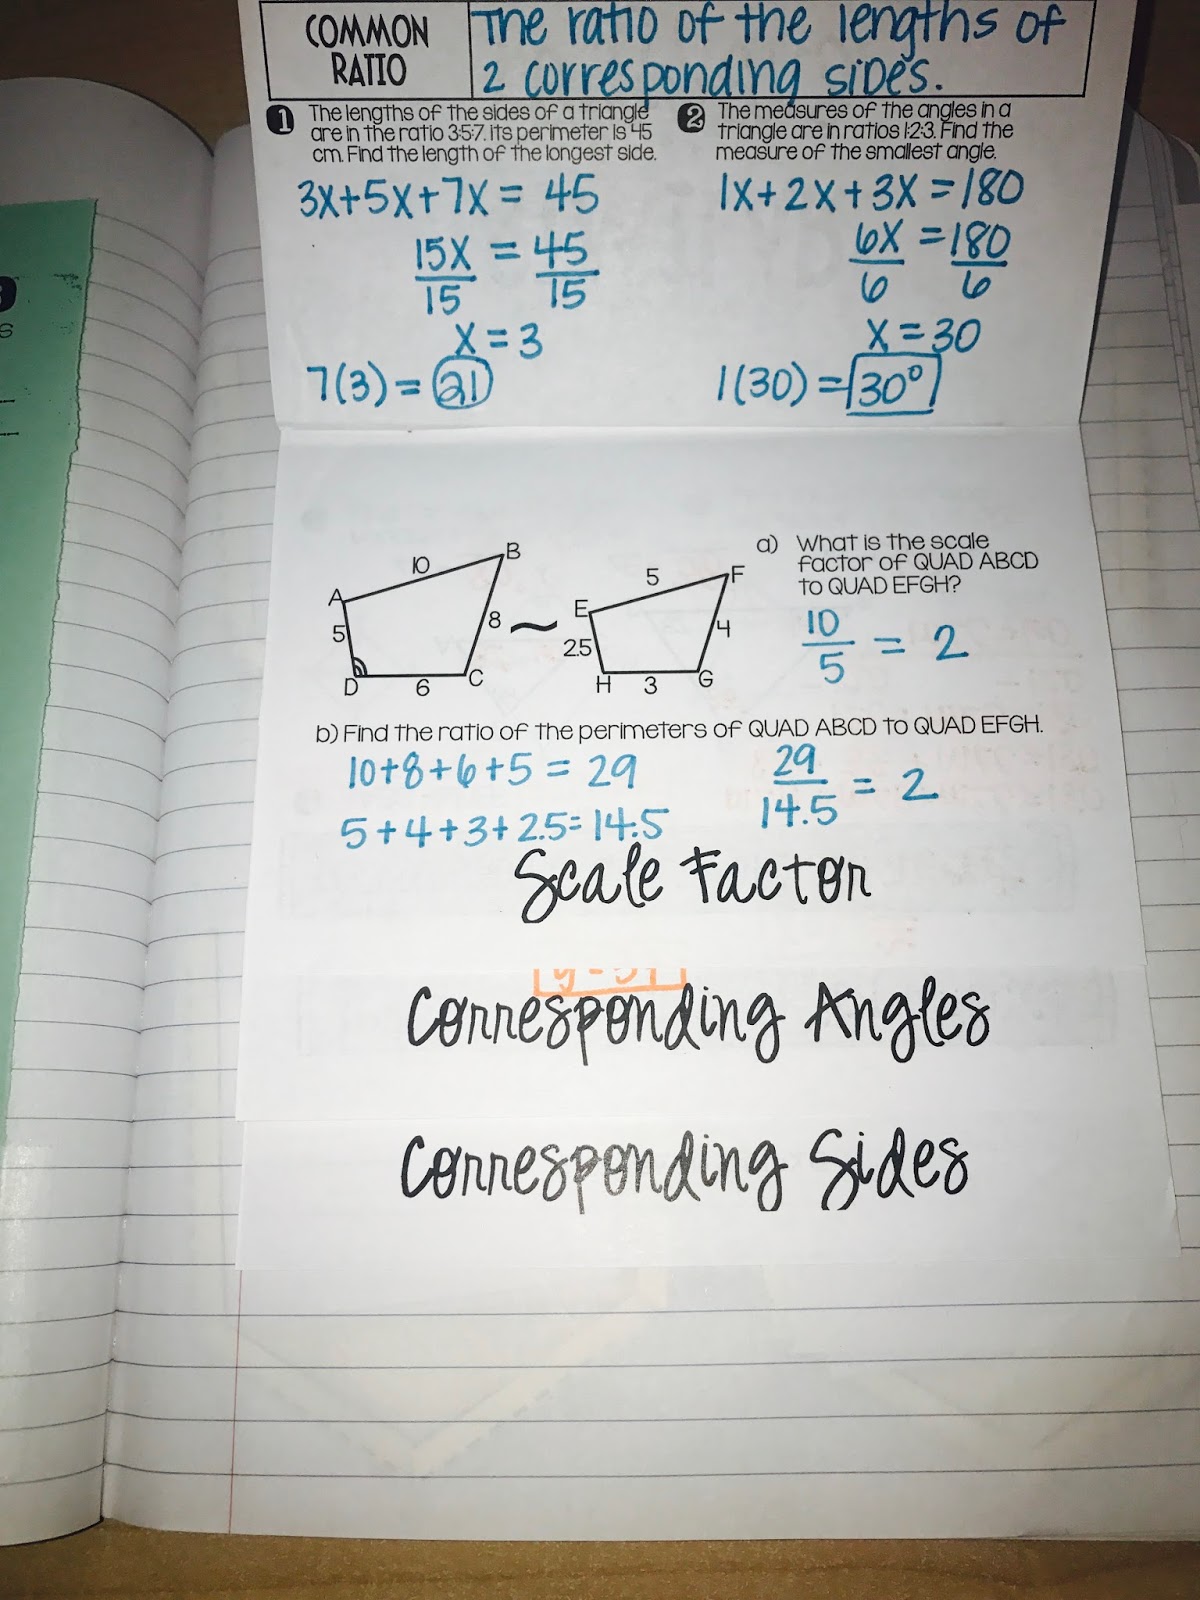 COMMON
RATIO
The ratio of the lengths of
2 corresponding sides.
1 The lengths of the sides of a triangle
are in the ratio 3:5:7. Its perimeter is 45
cm. Find the length of the longest side.
3x+5x+7x = 45
15x = 45
15 15
x = 3
7(3) = 21
2 The measures of the angles in a
triangle are in ratios 1:2:3. Find the
measure of the smallest angle.
1x+2x+3x = 180
6x = 180
6 6
x = 30
1(30) = 30°
A
10
B
5
8
D
6
C
~
E
5
F
2.5
4
H
3
G
a) What is the scale
factor of QUAD ABCD
to QUAD EFGH?
10
5
= 2
b) Find the ratio of the perimeters of QUAD ABCD to QUAD EFGH.
10+8+6+5 = 29
5+4+3+2.5=14.5
29
14.5
= 2
Scale Factor
Corresponding Angles
Corresponding Sides